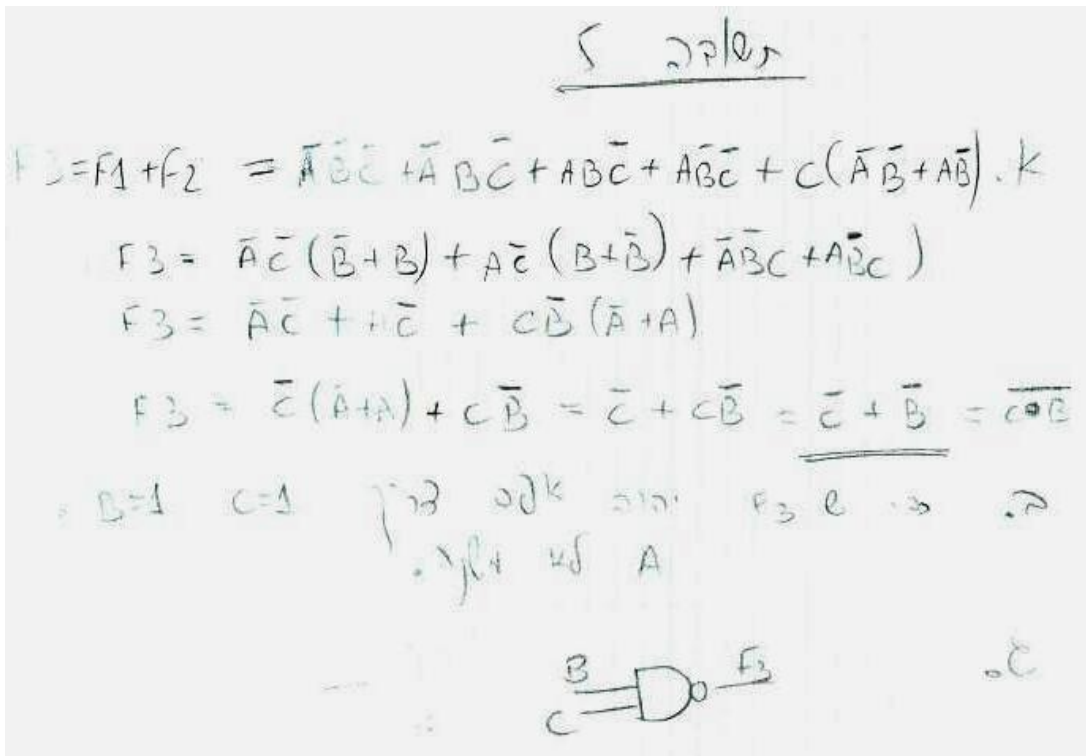 תשובה 5
א. F3=F1+F2 = A̅B̅C̅ + A̅BC̅ + ABC̅ + AB̅C̅ + C(A̅B̅+AB̅)
F3 = A̅C̅(B̅+B) + AC̅(B+B̅) + A̅B̅C + AB̅C)
F3 = A̅C̅ + AC̅ + CB̅(A̅+A)
F3 = C̅(A̅+A) + CB̅ = C̅ + CB̅ = C̅ + B̅ = \overline{C•B}
ב. כדי ש F3 יהיה אפס צריך C=1 B=1
A לא
ג.
B
C
F3